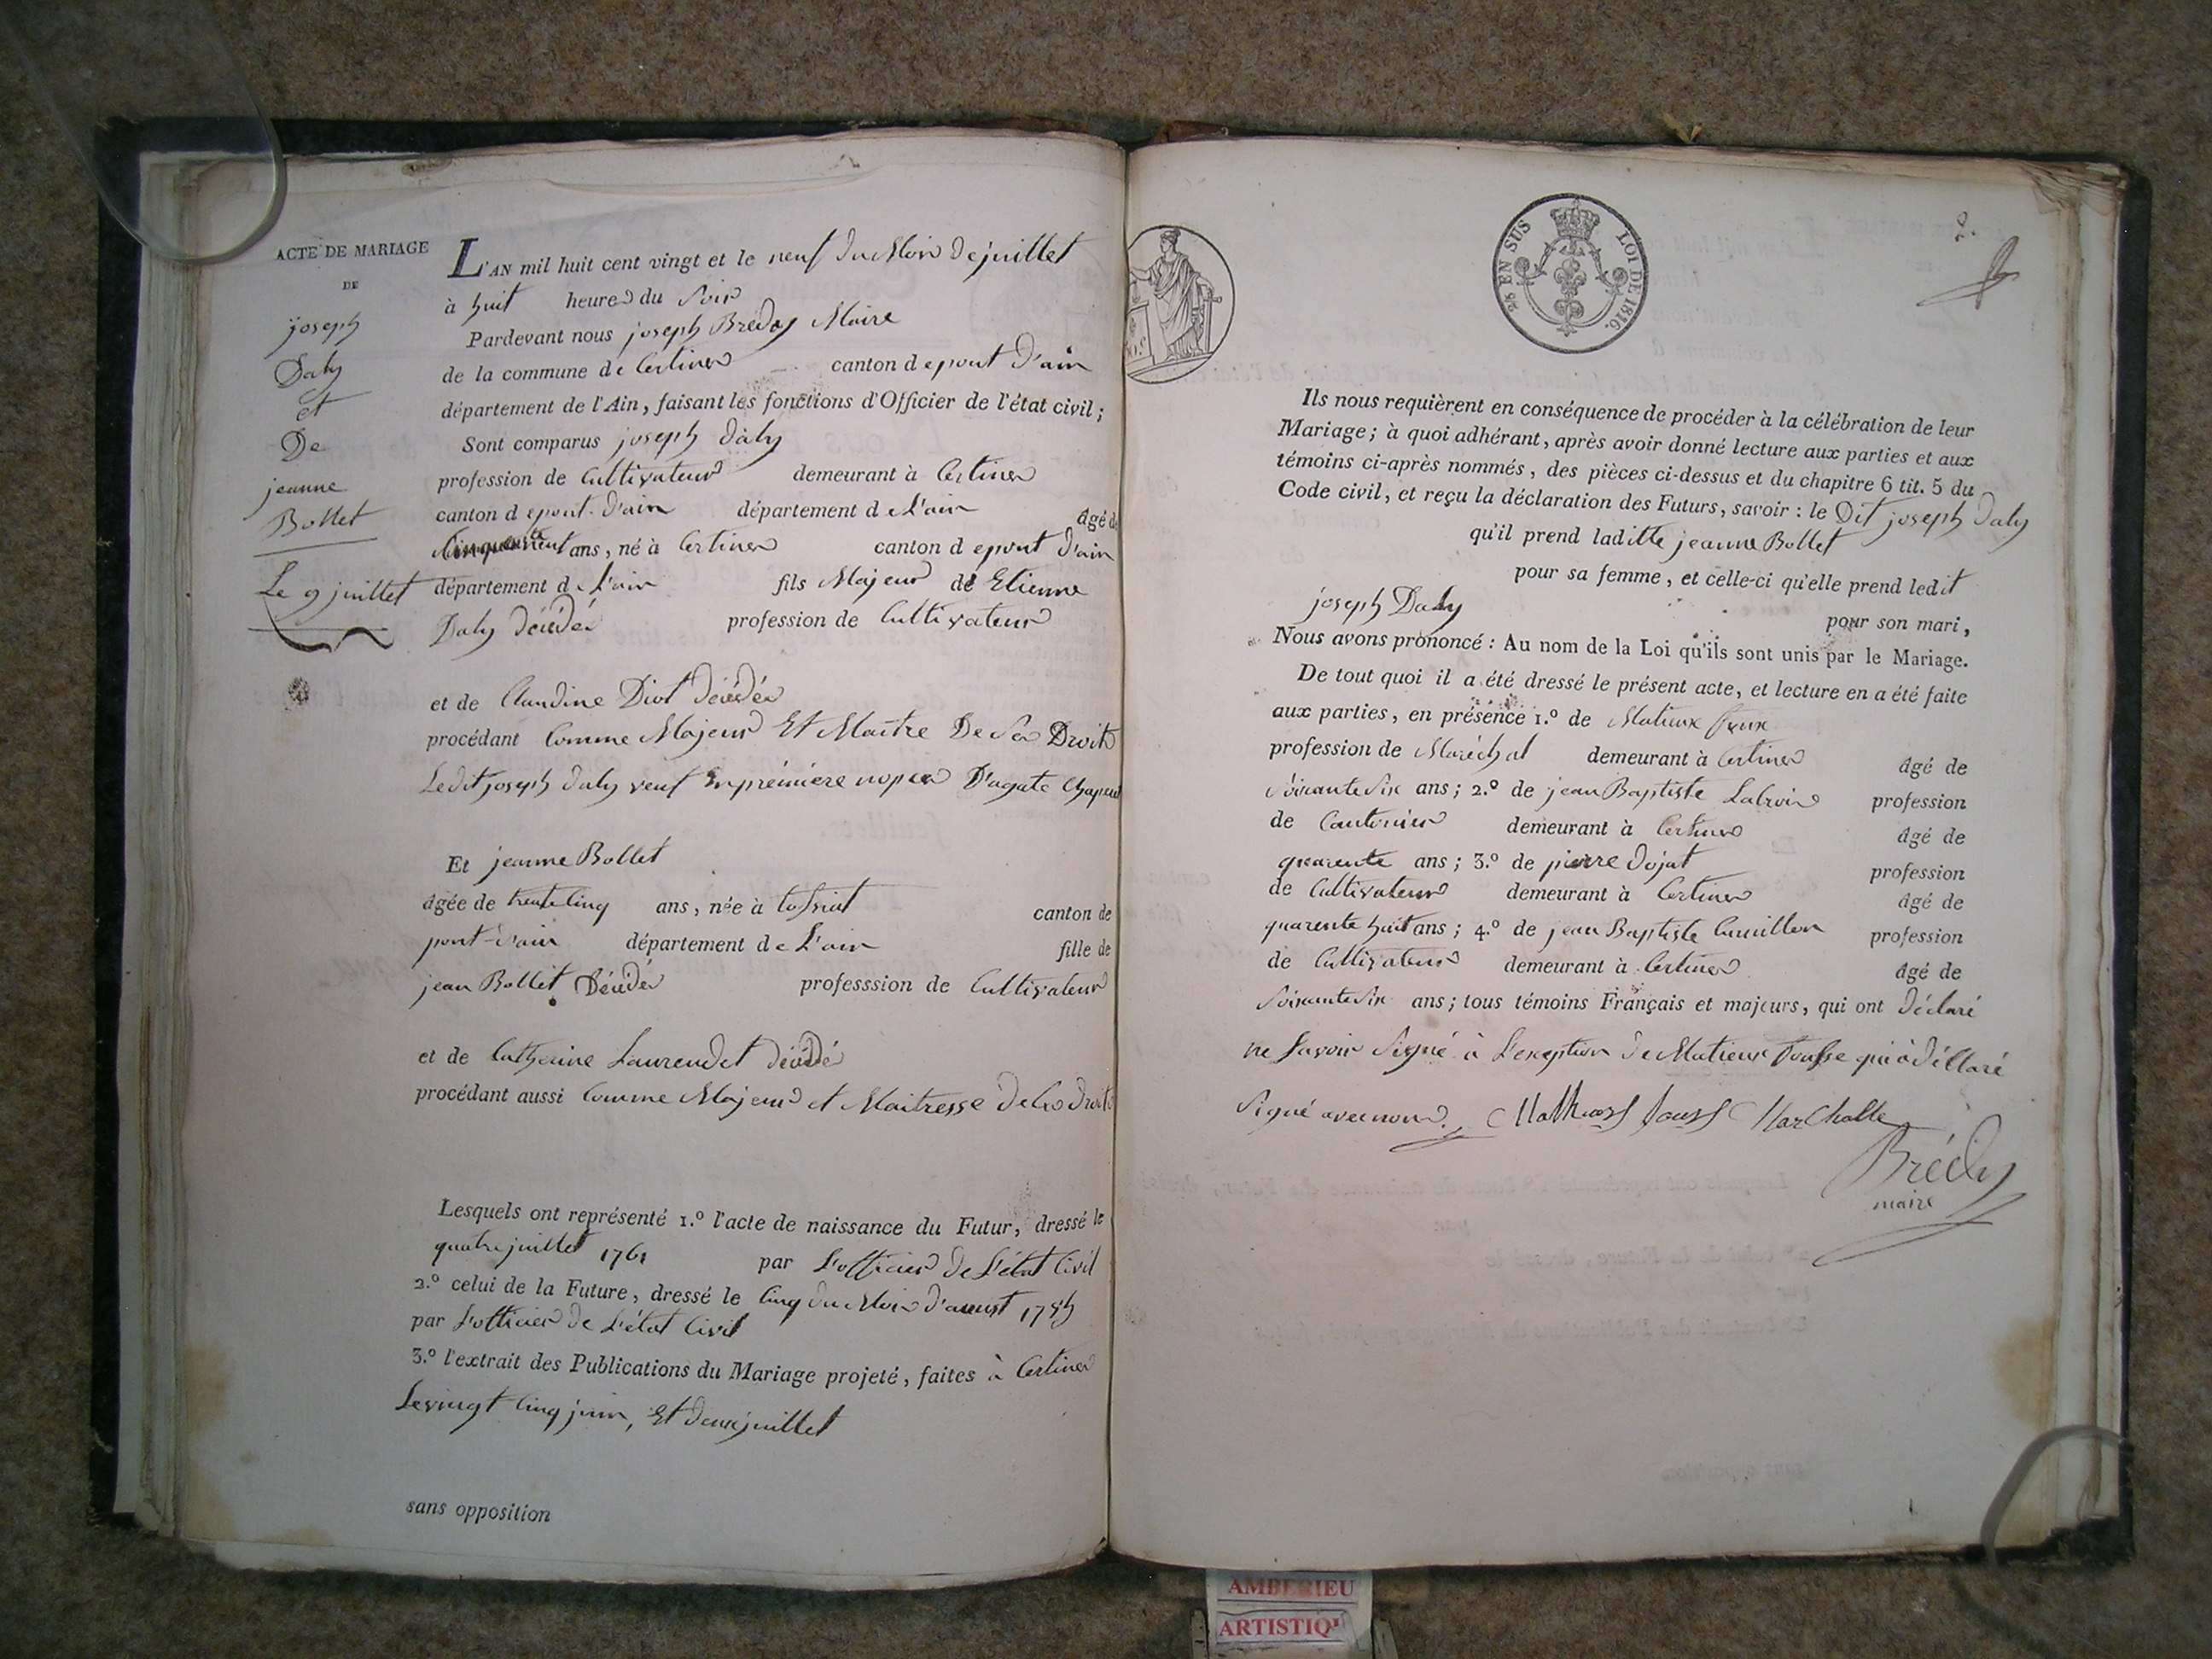 ACTE DE MARIAGE
DE
joseph
Daly
et
De
jeanne
Bollet
Le 9 juillet
L'AN mil huit cent vingt et le neuf du Mois de juillet
à huit heures du Soir
Pardevant nous joseph Bredy Maire
de la commune de Certines canton de pont d'ain
département de l'Ain, faisant les fonctions d'Officier de l'état civil;
Sont comparus joseph daly
profession de Cultivateur demeurant à Certines
canton de pont d'ain département de L'ain âgé de
Cinquante neuf ans, né à Certines canton de pont d'ain
département de L'ain fils Majeur de Etienne
Daly décédé profession de Cultivateur
et de Claudine Diot décédée
procédant Comme Majeur Et Maître De Ses Droits
Ledit joseph daly veuf En prémiere nopces D'agate
Et jeanne Bollet
âgée de trente Cinq ans, née à tossiat canton de
pont-d'ain département de L'ain fille de
jean Bollet Décédé professsion de Cultivateur
et de Catherine Laurendet décédé
procédant aussi Comme Majeur et Maitresse de Ses droits
Lesquels ont représenté 1.º l'acte de naissance du Futur, dressé le
quatre juillet 1761 par L'officier De L'état Civil
2.º celui de la Future, dressé le Cinq du Mois d'auust
par L'officier De L'état Civil
3.º l'extrait des Publications du Mariage projeté, faites à Certines
Le vingt Cinq juin, Et deux juillet
sans opposition
25 EN SUS
LOI DE 1816.
2.
Ils nous requièrent en conséquence de procéder à la célébration de leur
Mariage; à quoi adhérant, après avoir donné lecture aux parties et aux
témoins ci-après nommés, des pièces ci-dessus et du chapitre 6 tit. 5 du
Code civil, et reçu la déclaration des Futurs, savoir : le Dit joseph daly
qu'il prend laditte jeanne Bollet
pour sa femme, et celle-ci qu'elle prend ledit
joseph Daly pour son mari,
Nous avons prononcé : Au nom de la Loi qu'ils sont unis par le Mariage.
De tout quoi il a été dressé le présent acte, et lecture en a été faite
aux parties, en présence 1.º de Matieux
profession de Maréchal demeurant à Certines âgé de
Soixante Six ans; 2.º de jean Baptiste profession
de Cantonier demeurant à Certines âgé de
quarente ans; 3.º de pierre dojat profession
de Cultivateur demeurant à Certines âgé de
quarente huit ans; 4.º de jean Baptiste profession
de Cultivateur demeurant à Certines âgé de
Soixante Six ans; tous témoins Français et majeurs, qui ont déclaré
ne Savoir Signé à L'exeption de Matieux qui à déllaré
Signé avec nous.
Brédy
maire
AMBERIEU
ARTISTIQ